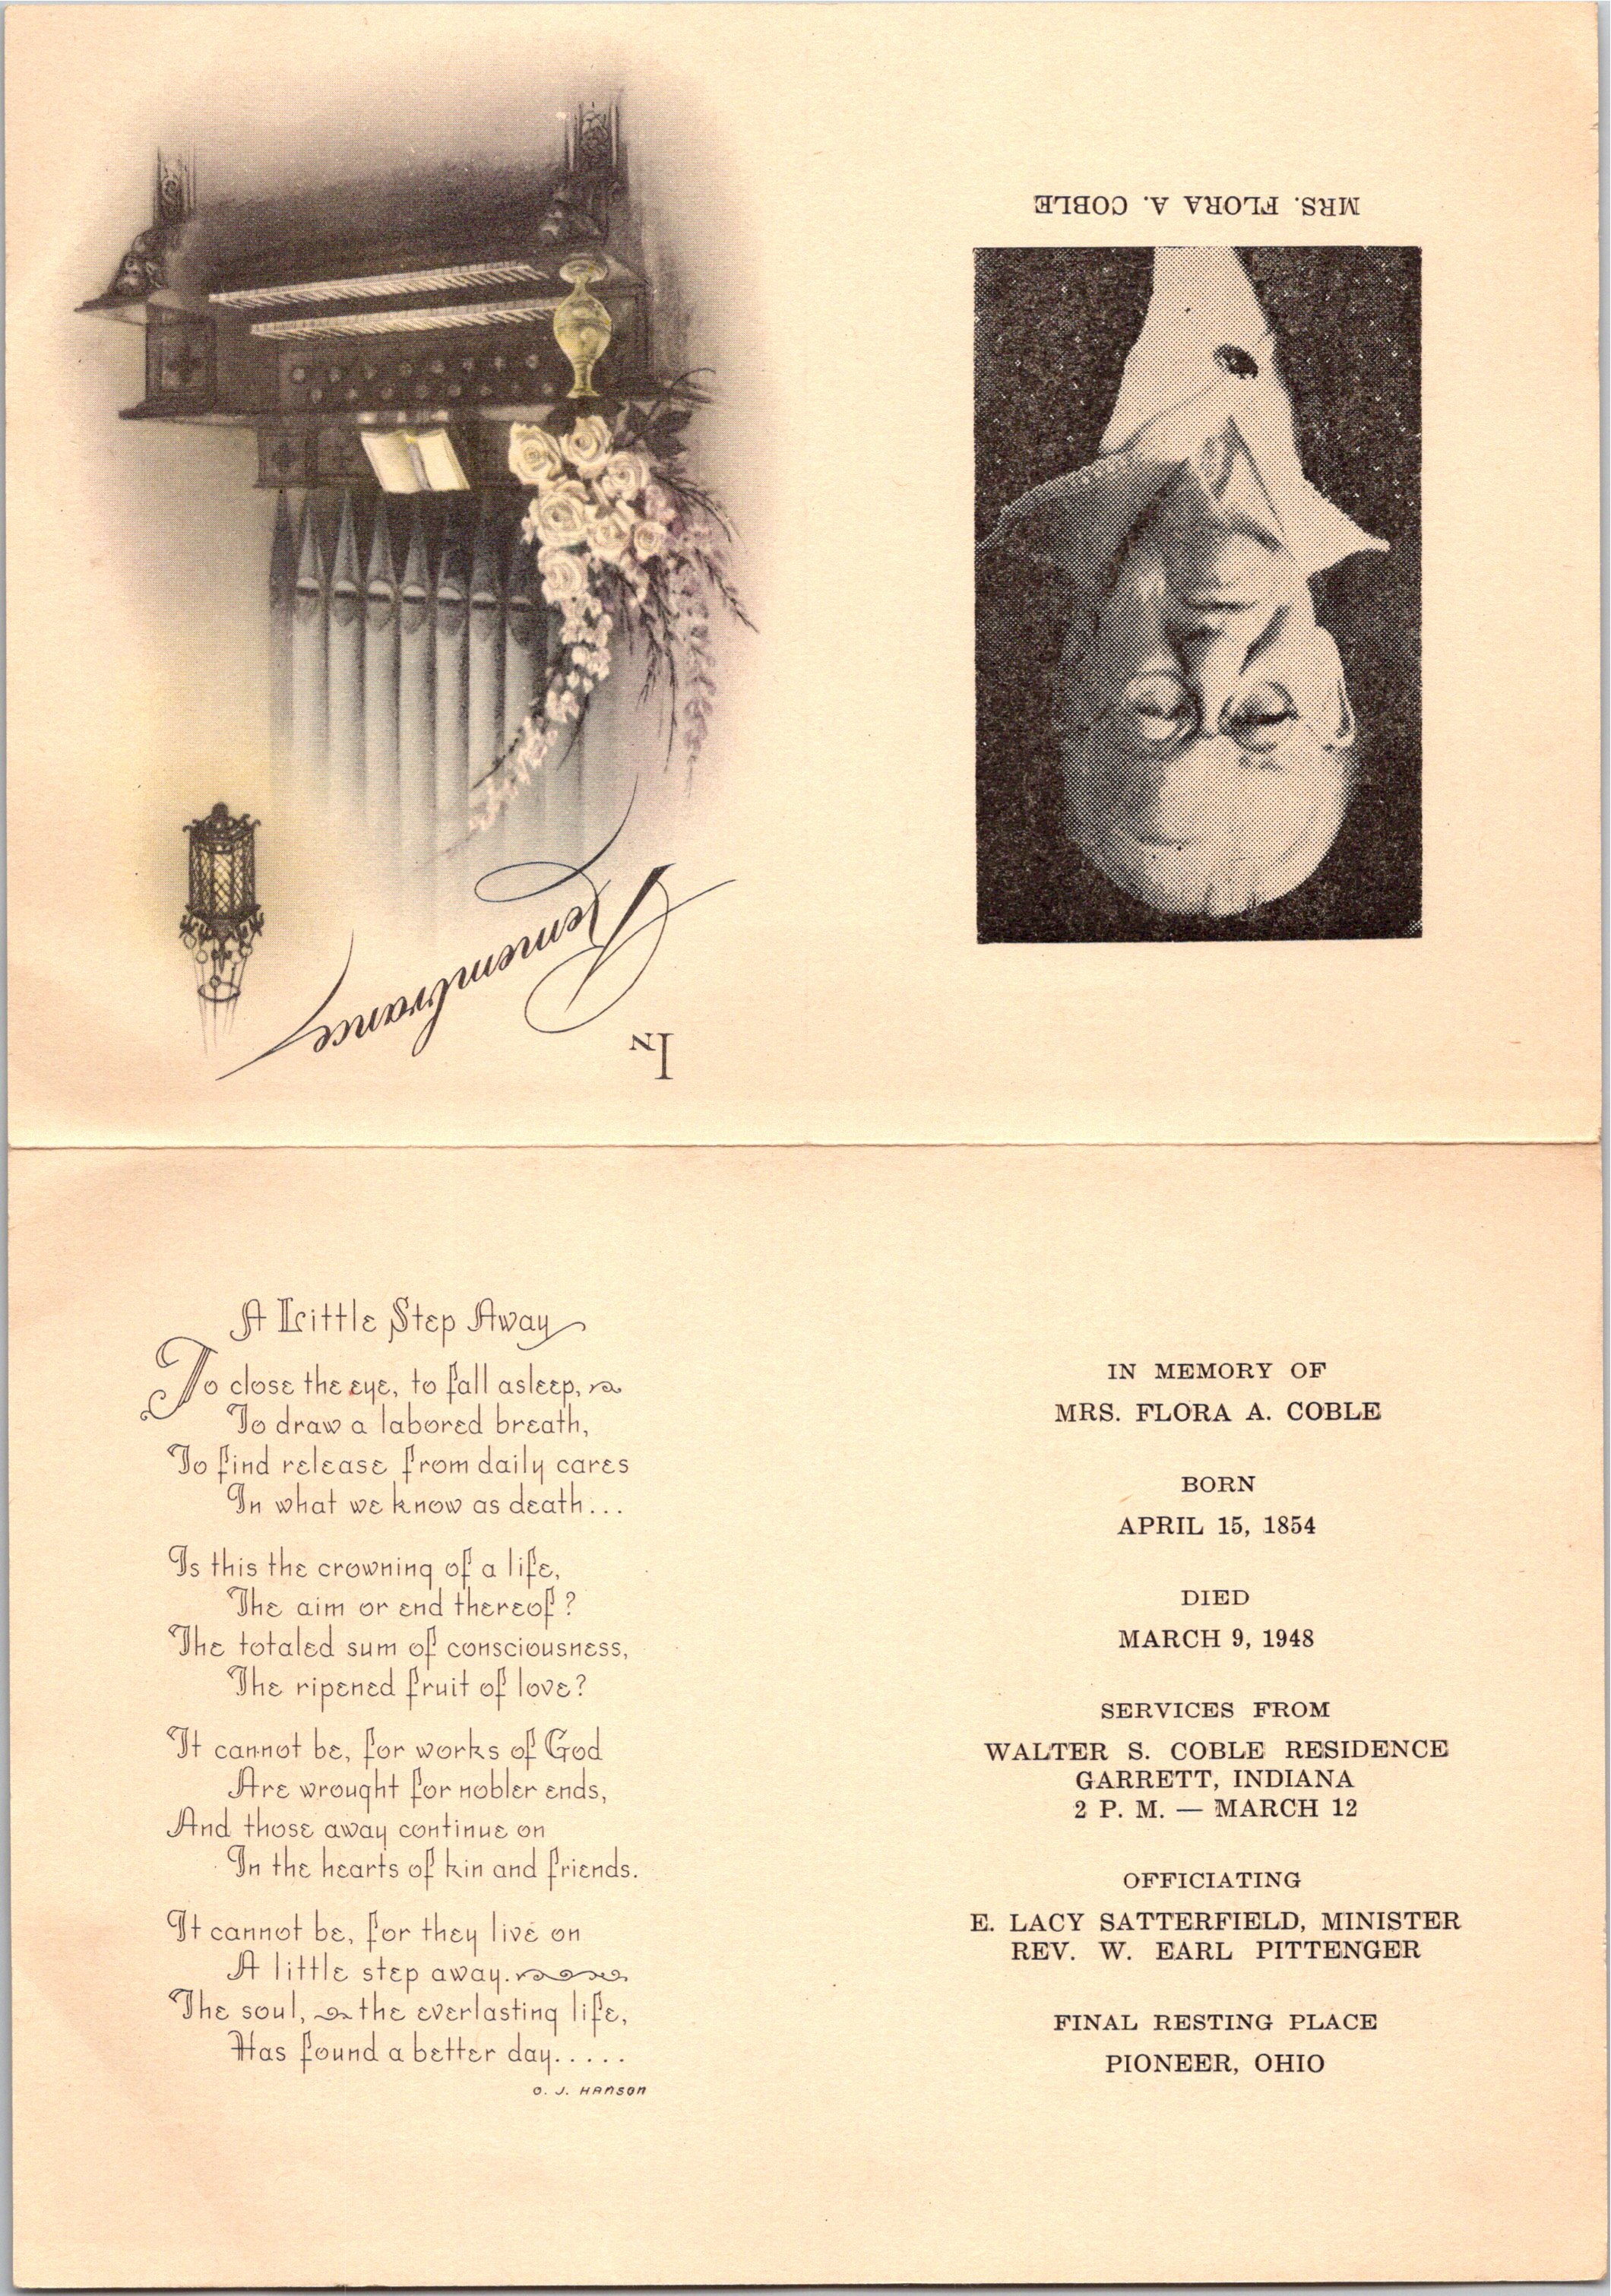 In
Remembrance
MRS. FLORA A. COBLE
A Little Step Away
To close the eye, to fall asleep,
To draw a labored breath,
To find release from daily cares
In what we know as death...
Is this the crowning of a life,
The aim or end thereof?
The totaled sum of consciousness,
The ripened fruit of love?
It cannot be, for works of God
Are wrought for nobler ends,
And those away continue on
In the hearts of kin and friends.
It cannot be, for they live on
A little step away.
The soul, the everlasting life,
Has found a better day.....
O. J. HANSON
IN MEMORY OF
MRS. FLORA A. COBLE
BORN
APRIL 15, 1854
DIED
MARCH 9, 1948
SERVICES FROM
WALTER S. COBLE RESIDENCE
GARRETT, INDIANA
2 P. M. — MARCH 12
OFFICIATING
E. LACY SATTERFIELD, MINISTER
REV. W. EARL PITTENGER
FINAL RESTING PLACE
PIONEER, OHIO